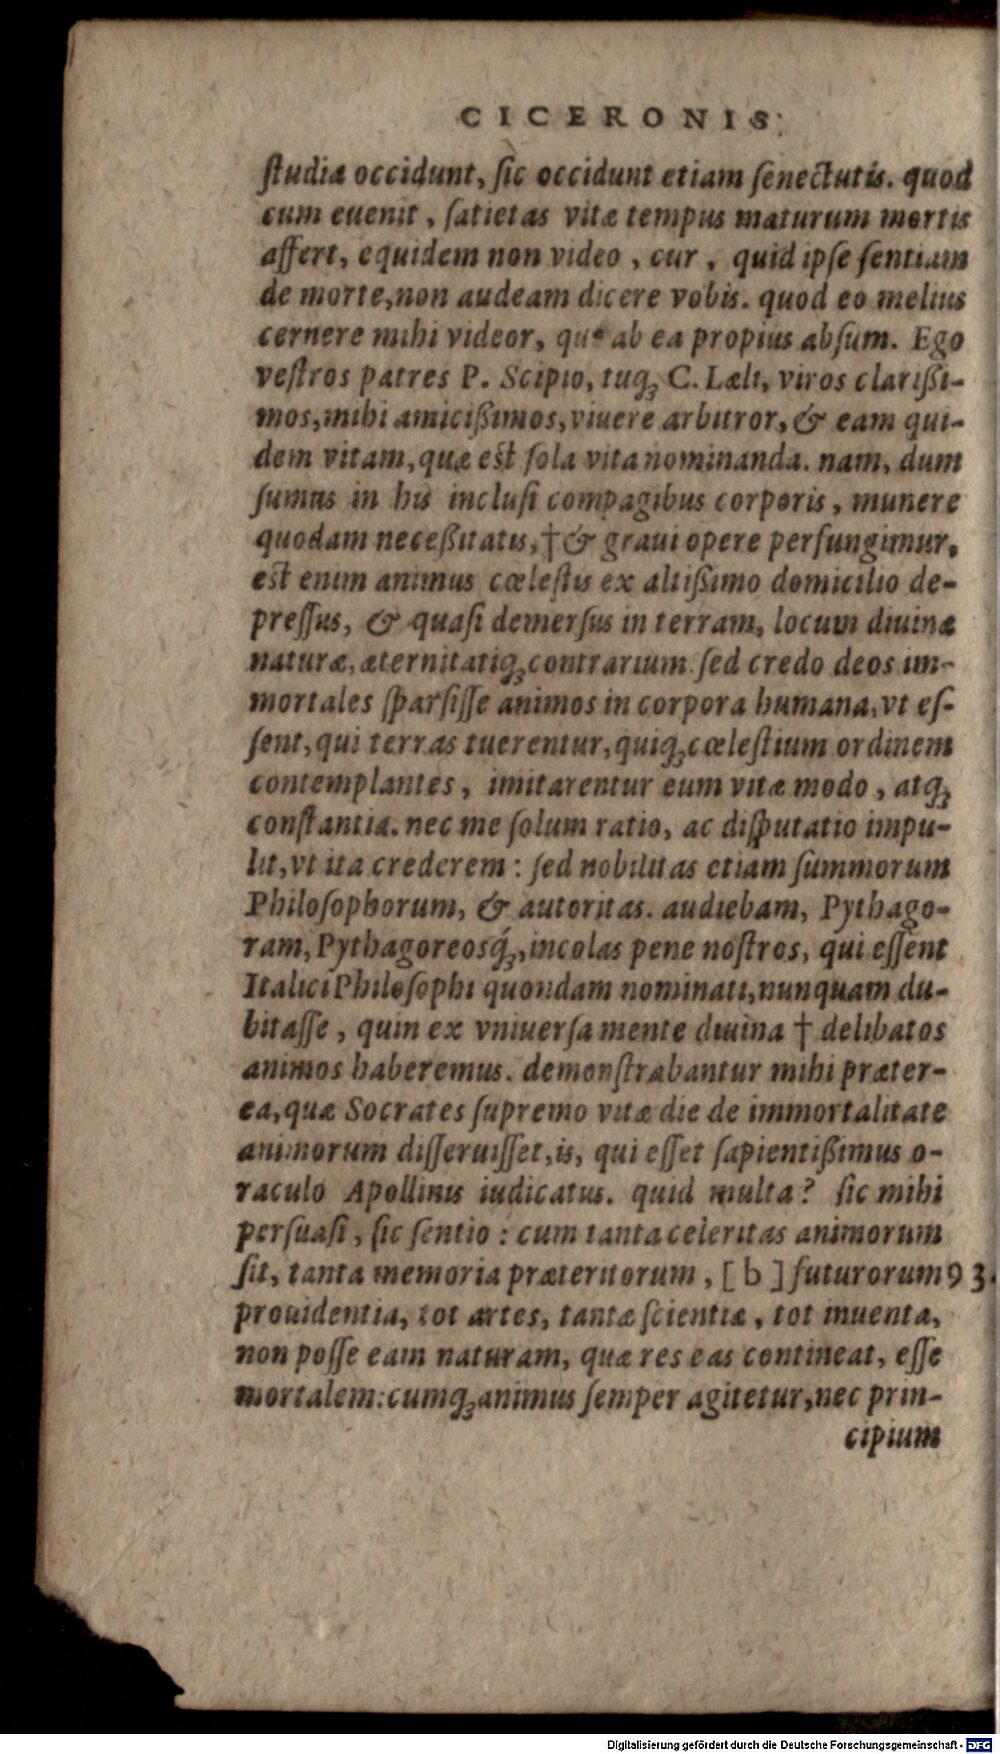 CICERONIS
ſtudia occidunt, ſic occidunt etiam ſenectutis. quod
cum euenit, ſatietas vitæ tempus maturum mortis
affert, equidem non video, cur, quid ipſe ſentiam
de morte, non audeam dicere vobis. quod eo melius
cernere mihi videor, quo ab ea propius abſum. Ego
veſtros patres P. Scipio, tuq́; C. Læli, viros clariſsi-
mos, mihi amiciſsimos, viuere arbitror, & eam qui-
dem vitam, quæ eſt ſola vita nominanda. nam, dum
ſumus in his incluſi compagibus corporis, munere
quodam neceſsitatis, † & graui opere perfungimur,
eſt enim animus cæleſtis ex altiſsimo domicilio de-
preſſus, & quaſi demerſus in terram, locum diuinæ
naturæ, æternitatiq; contrarium. ſed credo deos im-
mortales ſparſiſſe animos in corpora humana, vt eſ-
ſent, qui terras tuerentur, quiq; cæleſtium ordinem
contemplantes, imitarentur eum vitæ modo, atq;
conſtantia. nec me ſolum ratio, ac diſputatio impu-
lit, vt ita crederem: ſed nobilitas etiam ſummorum
Philoſophorum, & autoritas. audiebam, Pythago-
ram, Pythagoreosq́;, incolas pene noſtros, qui eſſent
Italici Philoſophi quondam nominati, nunquam du-
bitaſſe, quin ex vniuerſa mente diuina † delibatos
animos haberemus. demonſtrabantur mihi præter-
ea, quæ Socrates ſupremo vitæ die de immortalitate
animorum diſſeruiſſet, is, qui eſſet ſapientiſsimus o-
raculo Apollinis iudicatus. quid multa? ſic mihi
perſuaſi, ſic ſentio: cum tanta celeritas animorum
ſit, tanta memoria præteritorum, [b] futurorum 93.
prouidentia, tot artes, tantæ ſcientiæ, tot inuenta,
non poſſe eam naturam, quæ res eas contineat, eſſe
mortalem: cumq; animus ſemper agitetur, nec prin-
cipium
Digitalisierung gefördert durch die Deutsche Forschungsgemeinschaft - DFG